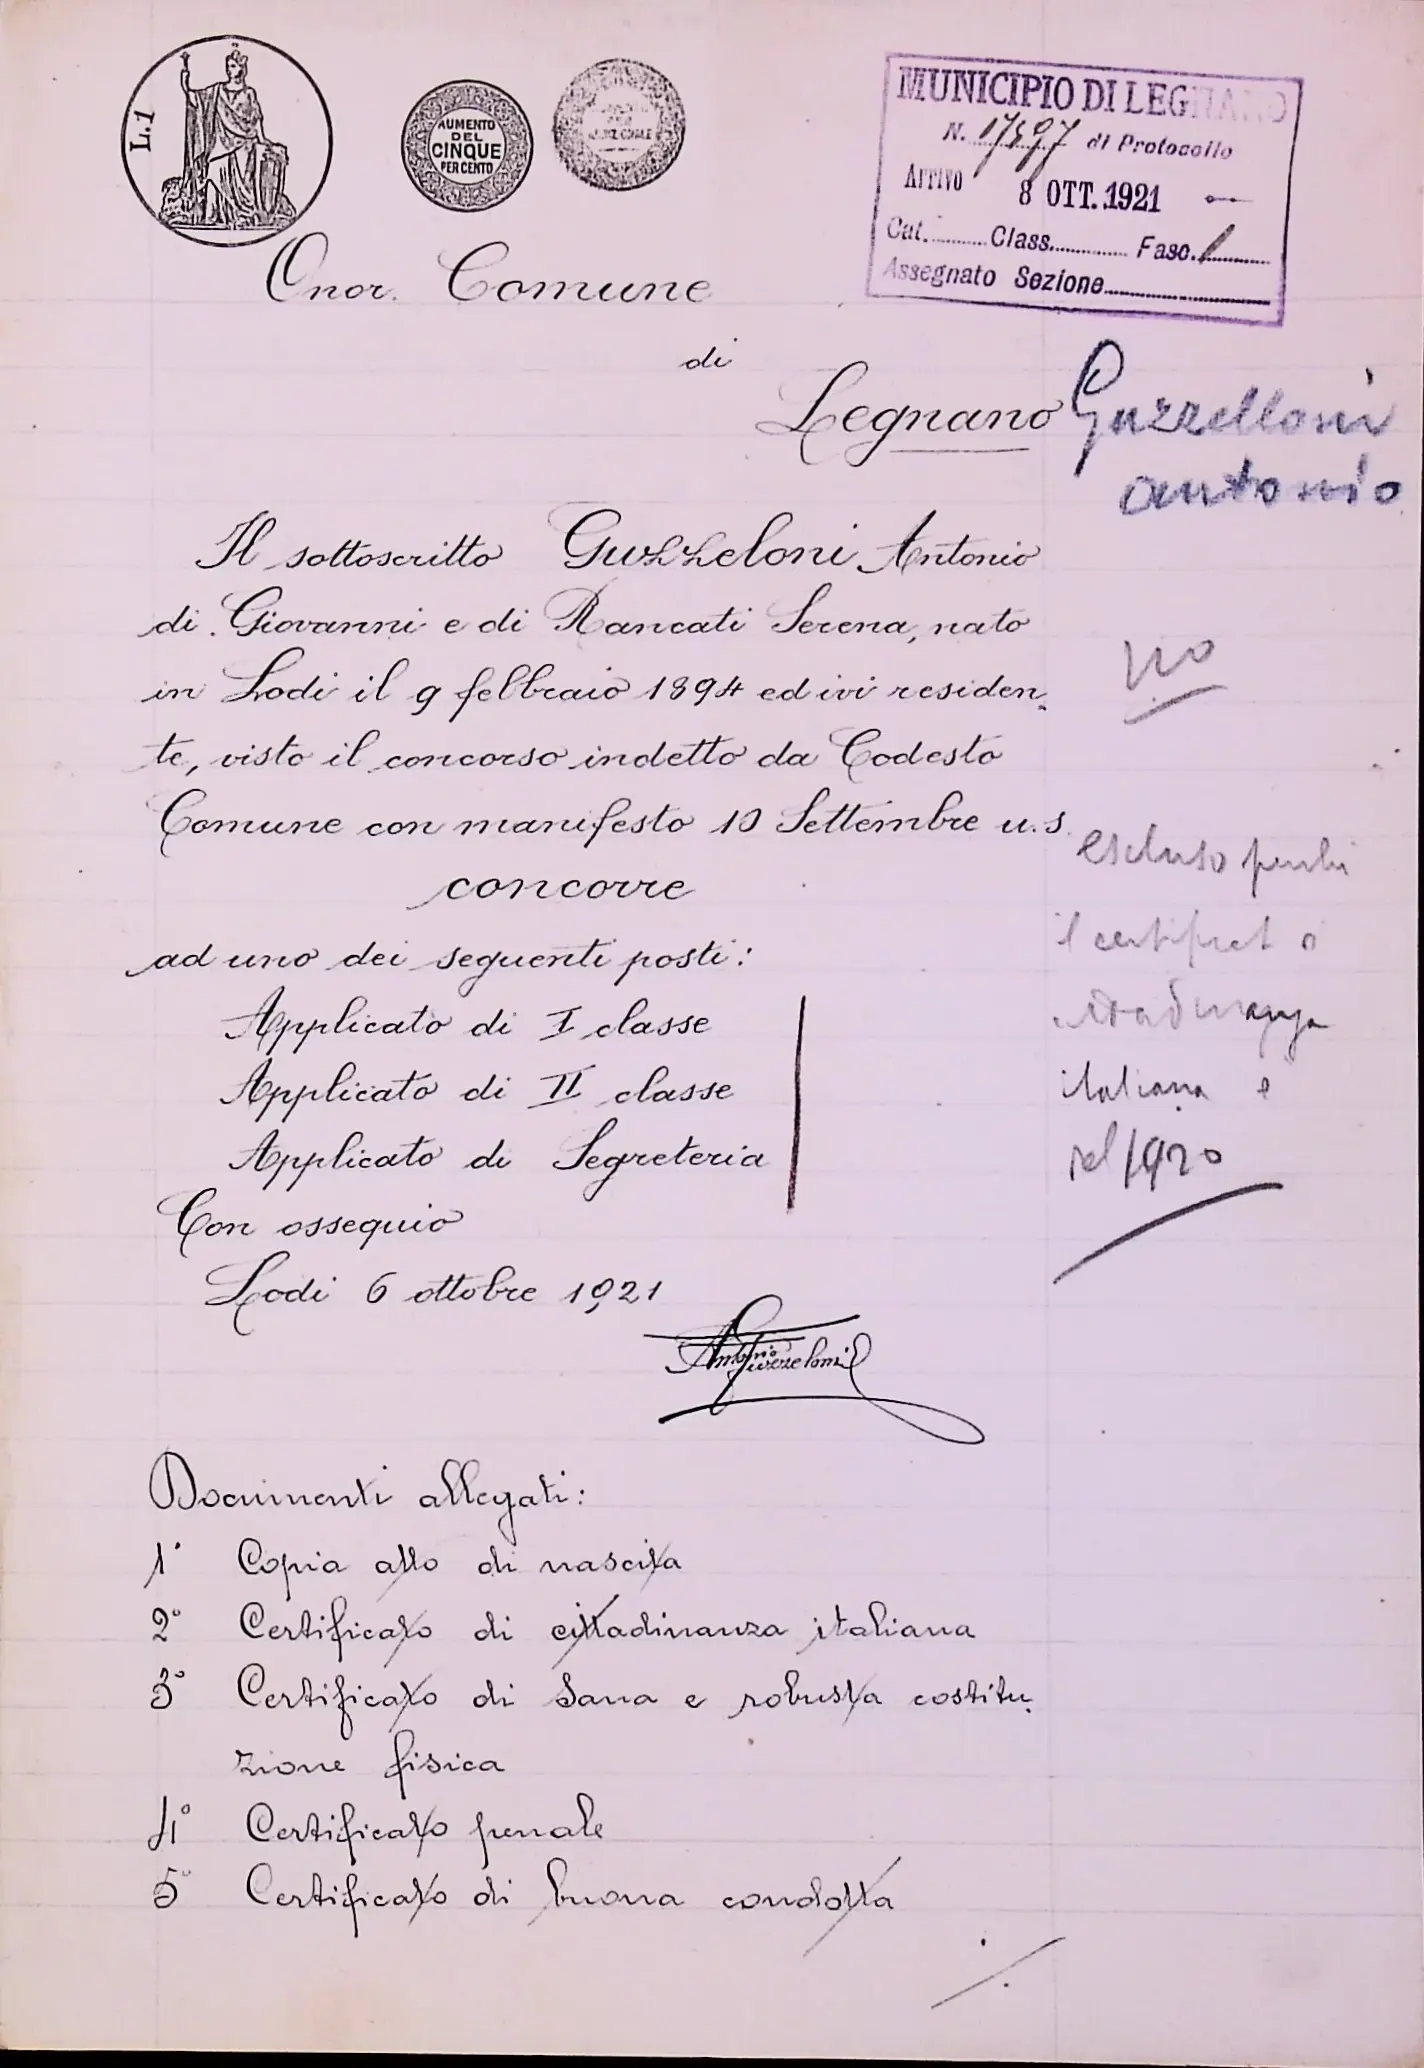 L.1
AUMENTO
DEL
CINQUE
PER CENTO
MUNICIPIO DI LEGNANO
N. di Protocollo
Arrivo 8 OTT. 1921
Cat. Class. Fasc. 1
Assegnato Sezione
Onor. Comune
di
Legnano
Guzzelloni
Antonio
Il sottoscritto Guzzeloni Antonio
di Giovanni e di Rancati Serena, nato
in Lodi il 9 febbraio 1894 ed ivi residen-
te, visto il concorso indetto da Codesto
Comune con manifesto 10 Settembre u.s.
concorre
ad uno dei seguenti posti:
Applicato di I classe
Applicato di II classe
Applicato di Segreteria
Con ossequio
Lodi 6 ottobre 1921
Antonio Guzzeloni
no
escluso perché
il certificato
cittadinanza
italiana è
del 1920
Documenti allegati:
1° Copia atto di nascita
2° Certificato di cittadinanza italiana
3° Certificato di sana e robusta costitu-
zione fisica
4° Certificato penale
5° Certificato di buona condotta
./.